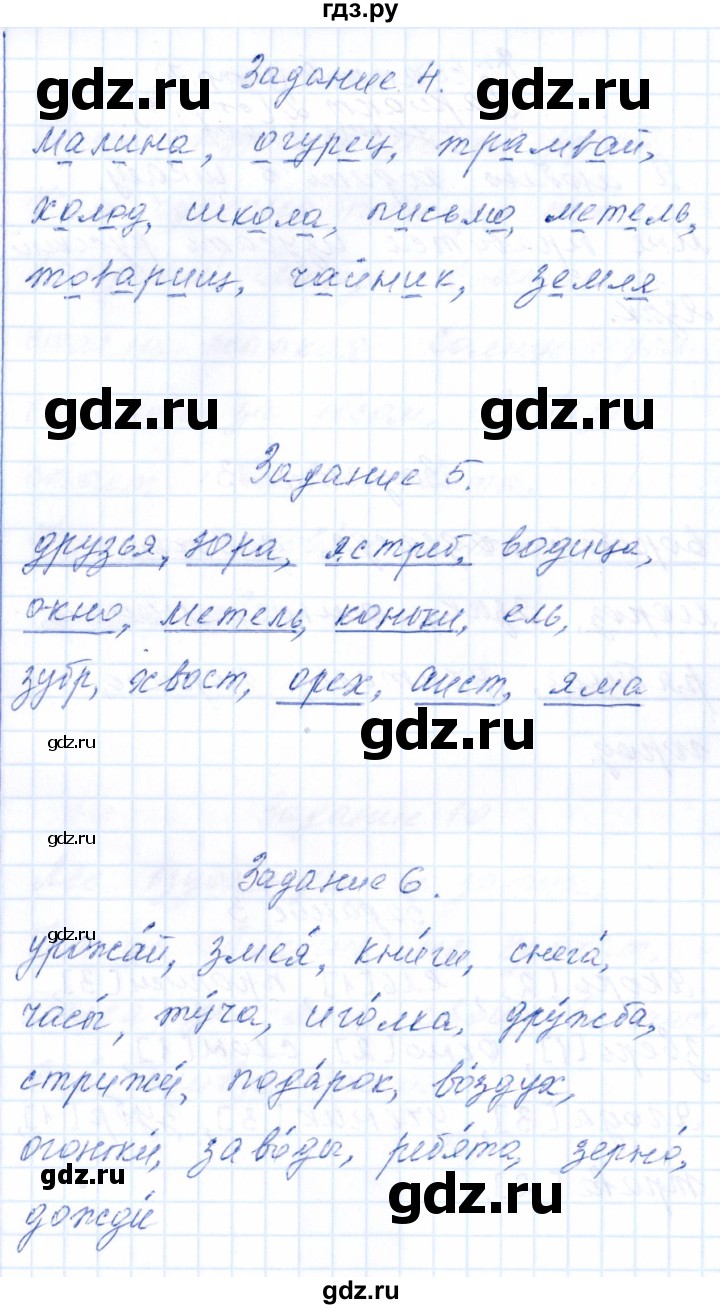 гдз.ру
Задание 4.
gdz.ru gdz.ru
Малина, огурец, трамвай,
холод, школа, письмо, метель,
товарищ, чайник, земля
gdz.ru gdz.ru
Задание 5.
друзья, Юра, ястреб, водица,
окно, метель, коньки, ель,
зубр, хвост, орех, аист, яма
gdz.ru gdz.ru
gdz.ru
Задание 6.
gdz.ru
урожа́й, змея́, кни́ги, снега́,
часы́, ту́ча, иго́лка, дру́жба,
стрижи́, пода́рок, во́здух,
огоньки́, заво́ды, ребя́та, зерно́,
gdz.ru gdz.ru
дожди́
gdz.ru